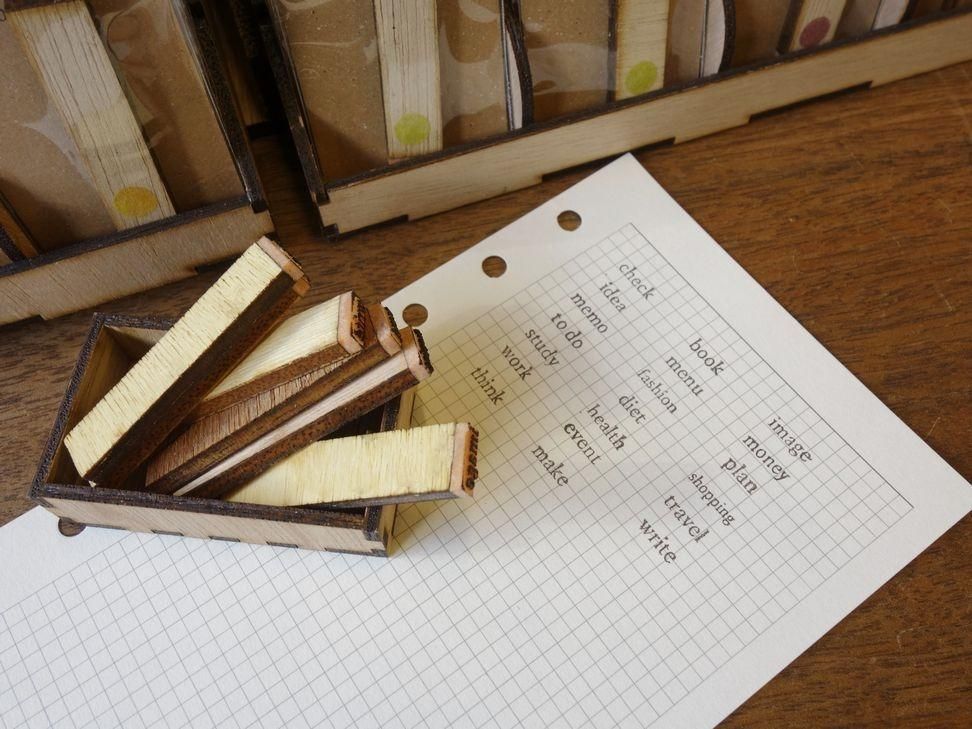 check
idea
memo
to do
study
work
think
book
menu
fashion
diet
health
event
make
image
money
plan
shopping
travel
write